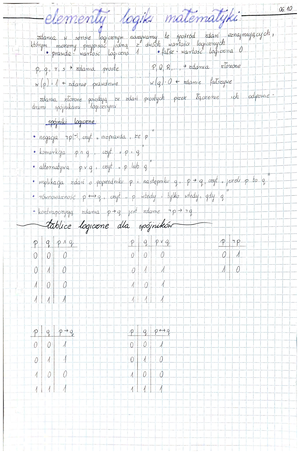 06.10
elementy logiki matematyki
zdania w sensie logicznym nazywamy te spośród zdań oznajmujących,
którym możemy przypisać jedną z dwóch wartości logicznych
• prawda wartość logiczna 1 • fałsz wartość logiczna 0
p, q, r, s → zdania proste P, Q, R, ... → zdania złożone
w(p) = 1 → zdanie prawdziwe w(q) = 0 → zdanie fałszywe
zdania złożone powstają ze zdań prostych przez łączenie ich odpowie-
dnimi spójnikami logicznymi
spójniki logiczne
• negacja ¬p, czyt. „nieprawda, że p”
• koniunkcja p ∧ q, czyt. „p i q”
• alternatywa p ∨ q, czyt. „p lub q”
• implikacja zdań o poprzedniku p i następniku q, p → q, czyt. „jeżeli p to q”
• równoważność p ↔ q, czyt. „p wtedy i tylko wtedy, gdy q”
• kontrapozycją zdania p → q jest zdanie ¬q → ¬p
tablice logiczne dla spójników
p q p∧q p q p∨q p ¬p
0 0 0 0 0 0 0 1
0 1 0 0 1 1 1 0
1 0 0 1 0 1
1 1 1 1 1 1
p q p→q p q p↔q
0 0 1 0 0 1
0 1 1 0 1 0
1 0 0 1 0 0
1 1 1 1 1 1